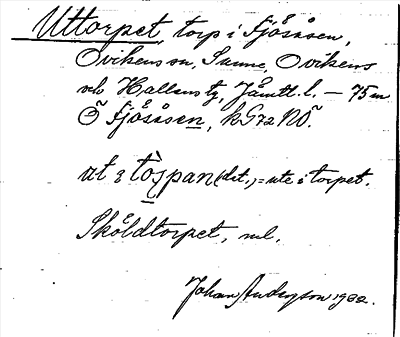 Uttorpet, torp i Sjösåsen,
Ovikens sn, Sunne, Ovikens
o. Hallens tg, Jämtl. l. – 75 m
Ö Sjösåsen, kG72NÖ.
ut i tòşpan (det.) = ute i torpet.
Sköldtorpet, nl.
Johan Anderson 1932.